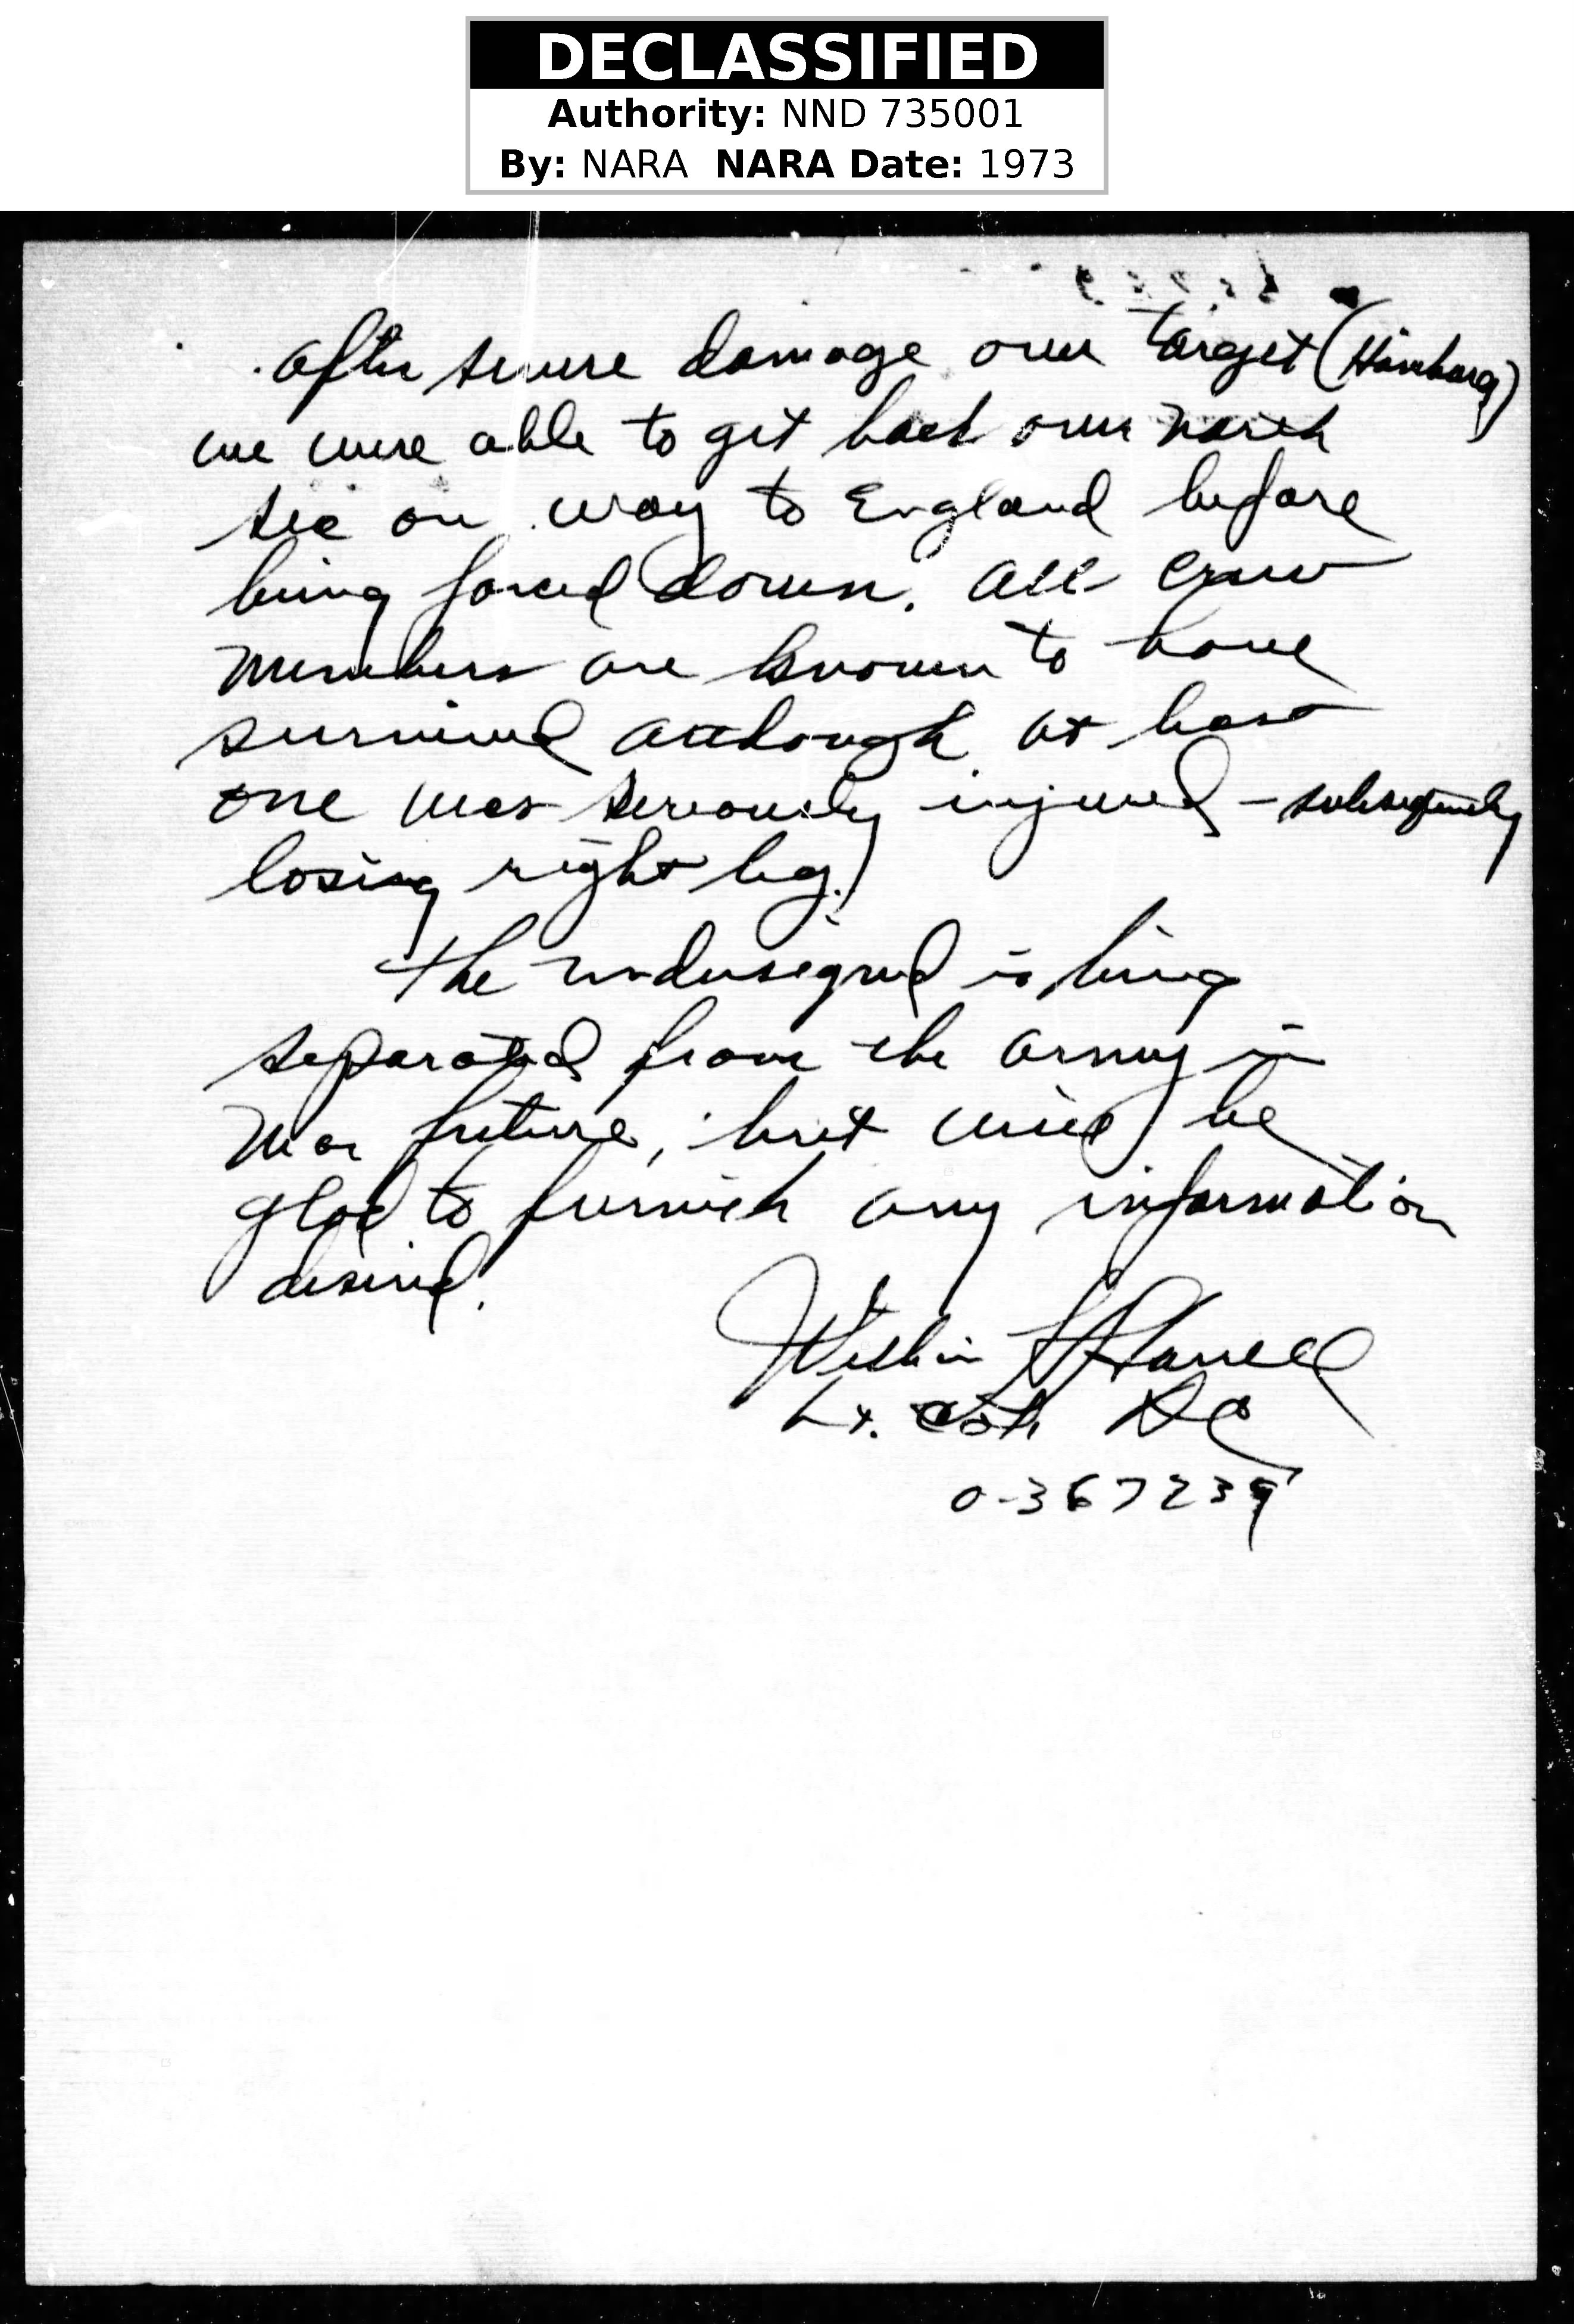 DECLASSIFIED
Authority: NND 735001
By: NARA NARA Date: 1973
After severe damage over target (Hamburg)
we were able to get back over North
Sea on way to England before
being forced down. All crew
members are known to have
survived although at least
one was seriously injured - subsequently
losing right leg.
The undersigned is being
separated from the army in
near future, but will be
glad to furnish any information
desired.
Lt. Col.
0-367239